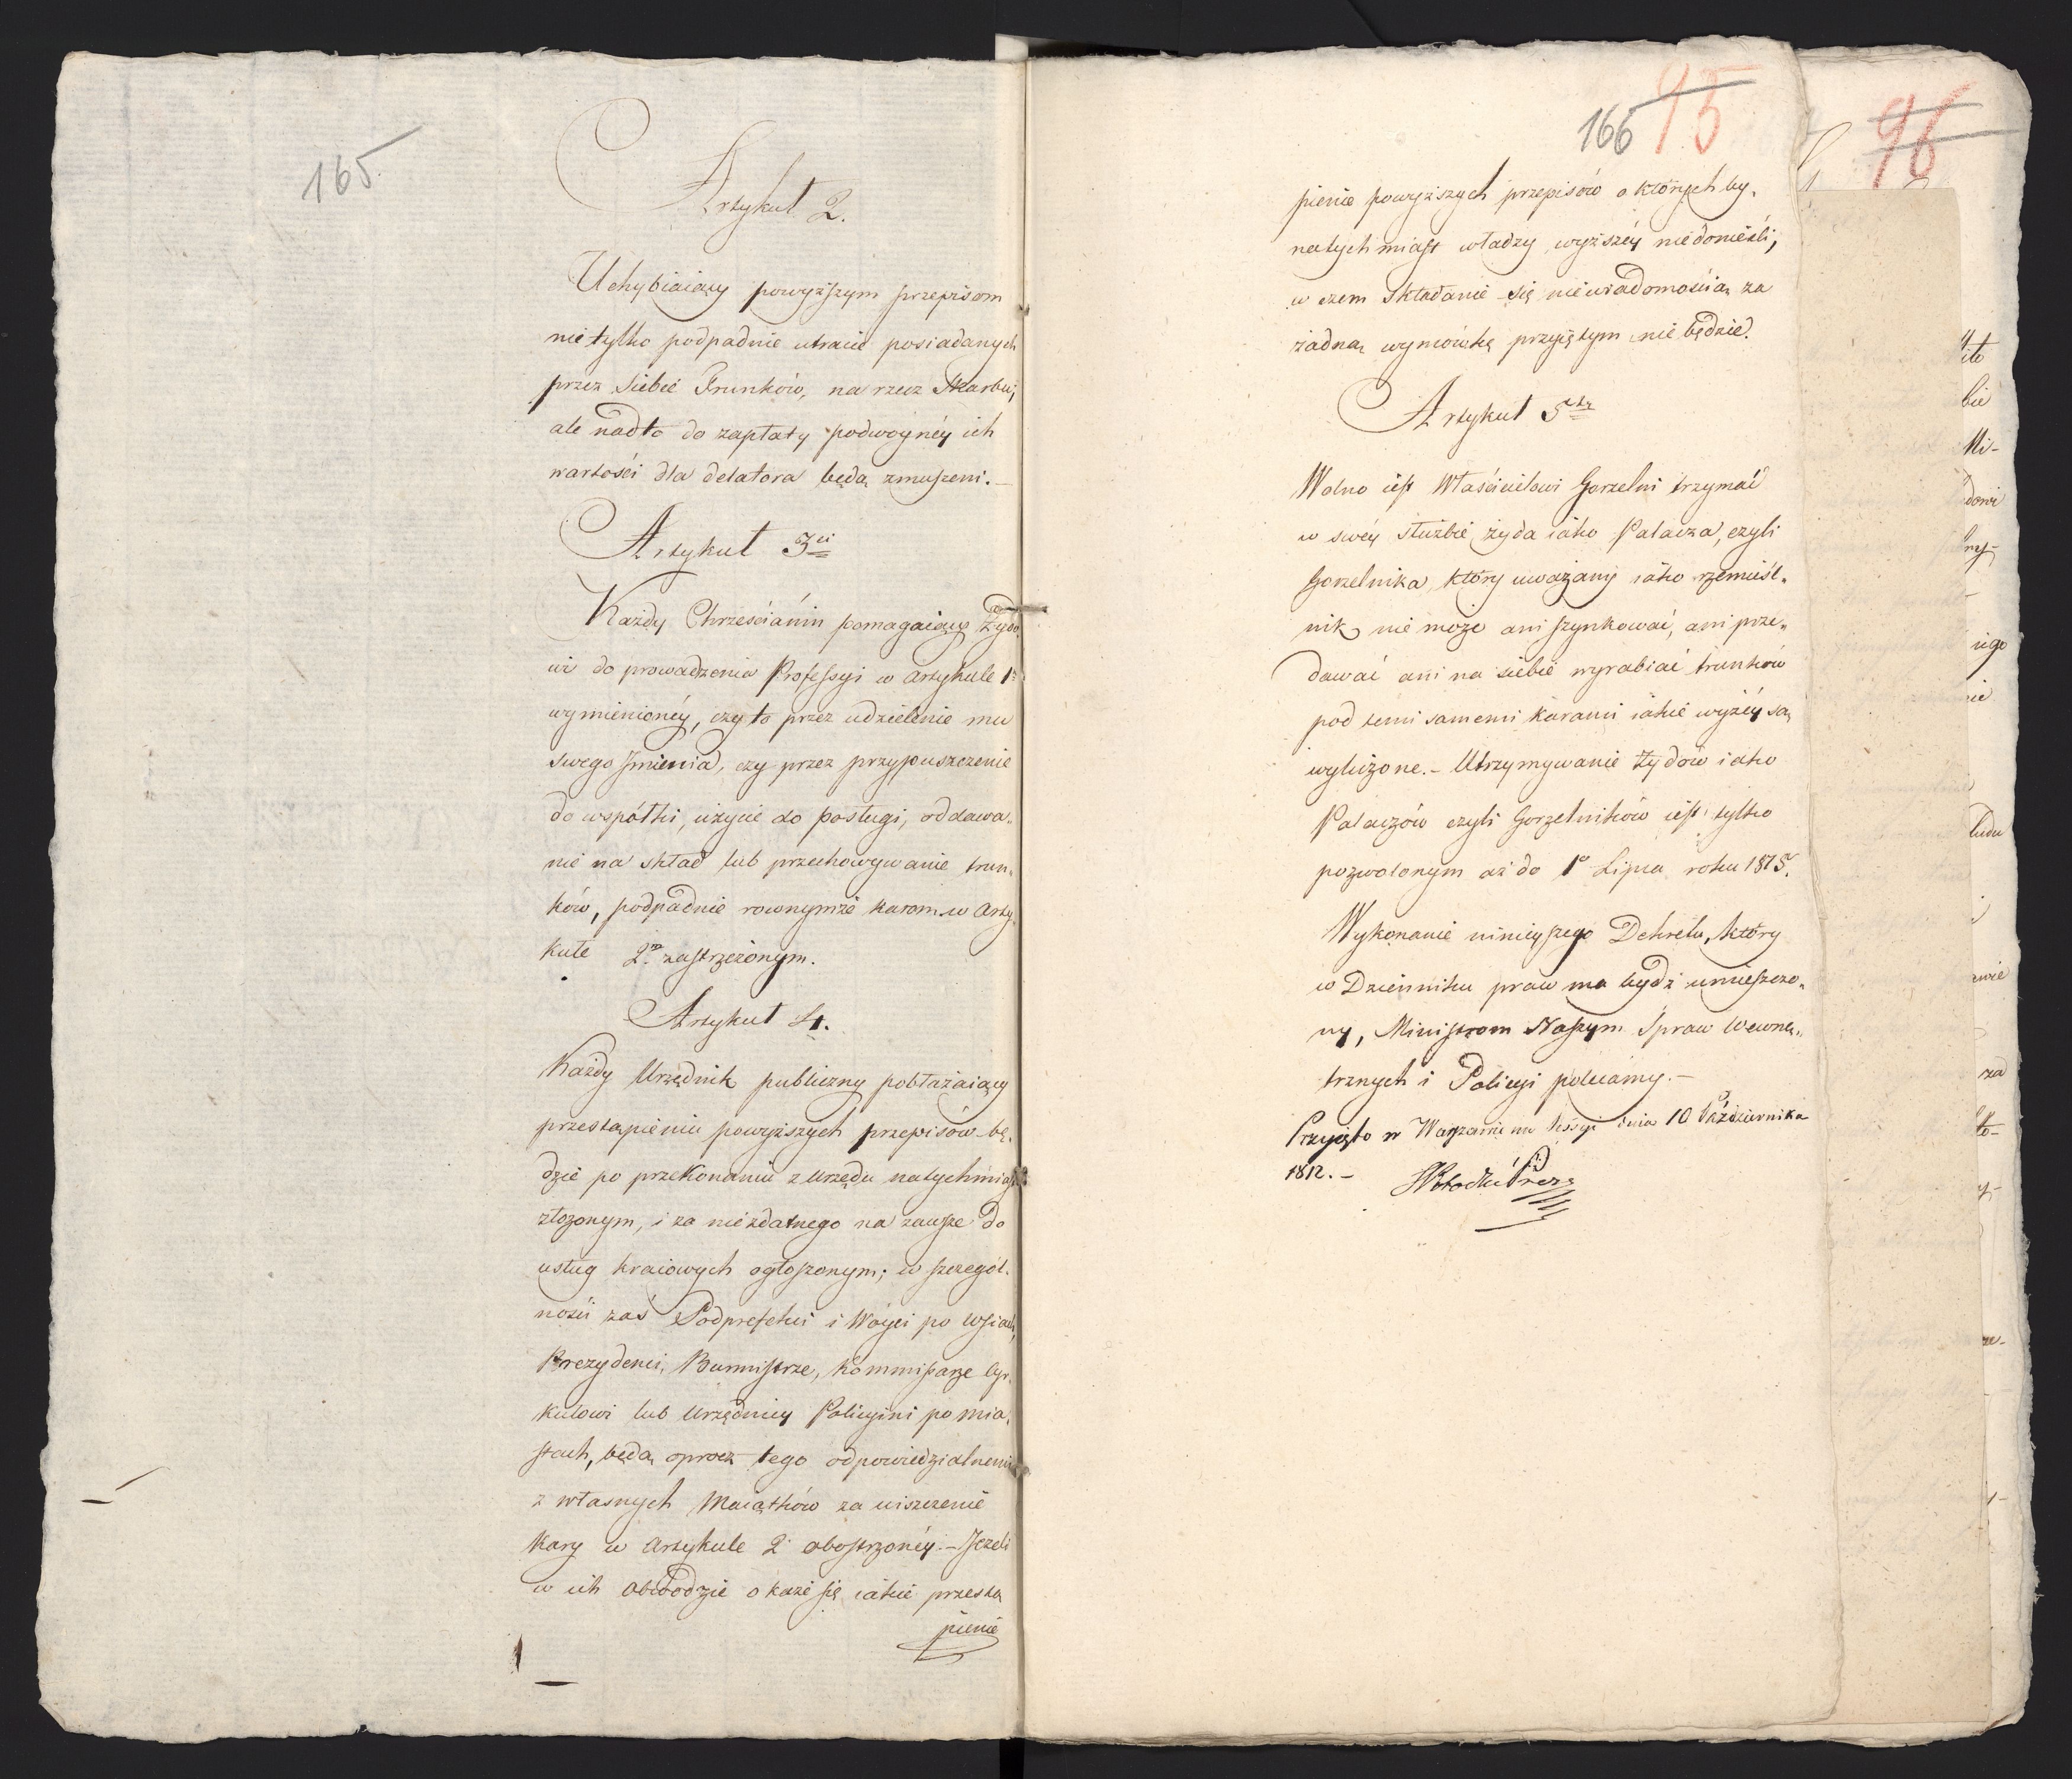 165.
Artykuł 2.
Uchybiaiący powyższym przepisom
nie tylko podpadnie utracie posiadanych
przez siebie Trunków, na rzecz Skarbu,
ale nadto do zapłaty podwoynéy ich
wartości dla delatora będą zmuszeni.—
Artykuł 3ci
Każdy Chrześcianin pomagaiący Żydo„
wi do prowadzenia Professyi w artykule 1m
wymienionéy, czy to przez udzielenie mu
swego Jmienia, czy przez przypuszczenie
do wspólki, użycie do posługi, oddawa„
nie na skład lub przechowywanie trun„
ków, podpadnie rownymże karom w Arty„
kule 2m zastrzeżonym.
Artykuł 4.
Każdy Urzędnik publiczny pobłażaiący
przestąpieniu powyższych przepisów bę„
dzie po przekonaniu z urzędu natychmiast
złożonym, i za niezdatnego na zawsze do
usług kraiowych ogłoszonym; w szczegól„
ności zaś Podprefekci i Wóyci po wsiach,
Prezydenci, Burmistrze, Kommissarze Cyr„
kułowi lub Urzędnicy Policyini po mia„
stach, będą oprocz tego odpowiedzialnemi
z własnych Maiątków za uiszczenie
Kary w artykule 2 obostrzonéy.— Jeżeli
w ich obwodzie okaże się iakie przestą
pienie
166 95
pienie powyższych przepisów o których by„
natychmiast władzy wyższéy nie donieśli,
w czem składanie się niewiadomością za
żadną wymówkę przyiętym nie będzie.
Artykuł 5ty
Wolno iest Właścicielowi Gorzelni trzymać
w swéy służbie żyda iako Palacza, czyli
Gorzelnika, który uważany iako rzemieśl„
nik nie może ani szynkować, ani prze„
dawać ani na siebie wyrabiać trunków
pod temi samemi karami iakie wyżéy są
wyłuzone.— Utrzymywanie Żydów iako
Palaczów czyli Gorzelników iest tylko
pozwolonym aż do 1o Lipca roku 1815.
Wykonanie ninieyszego Dekretu, który
w Dzienniku praw ma bydź umieszczo„
ny, Ministrom Naszym Spraw Wewnę„
trznych i Policyi polecamy.—
Przyięto w Warszawie na Sessyi dnia 10 Października
1812.—
96